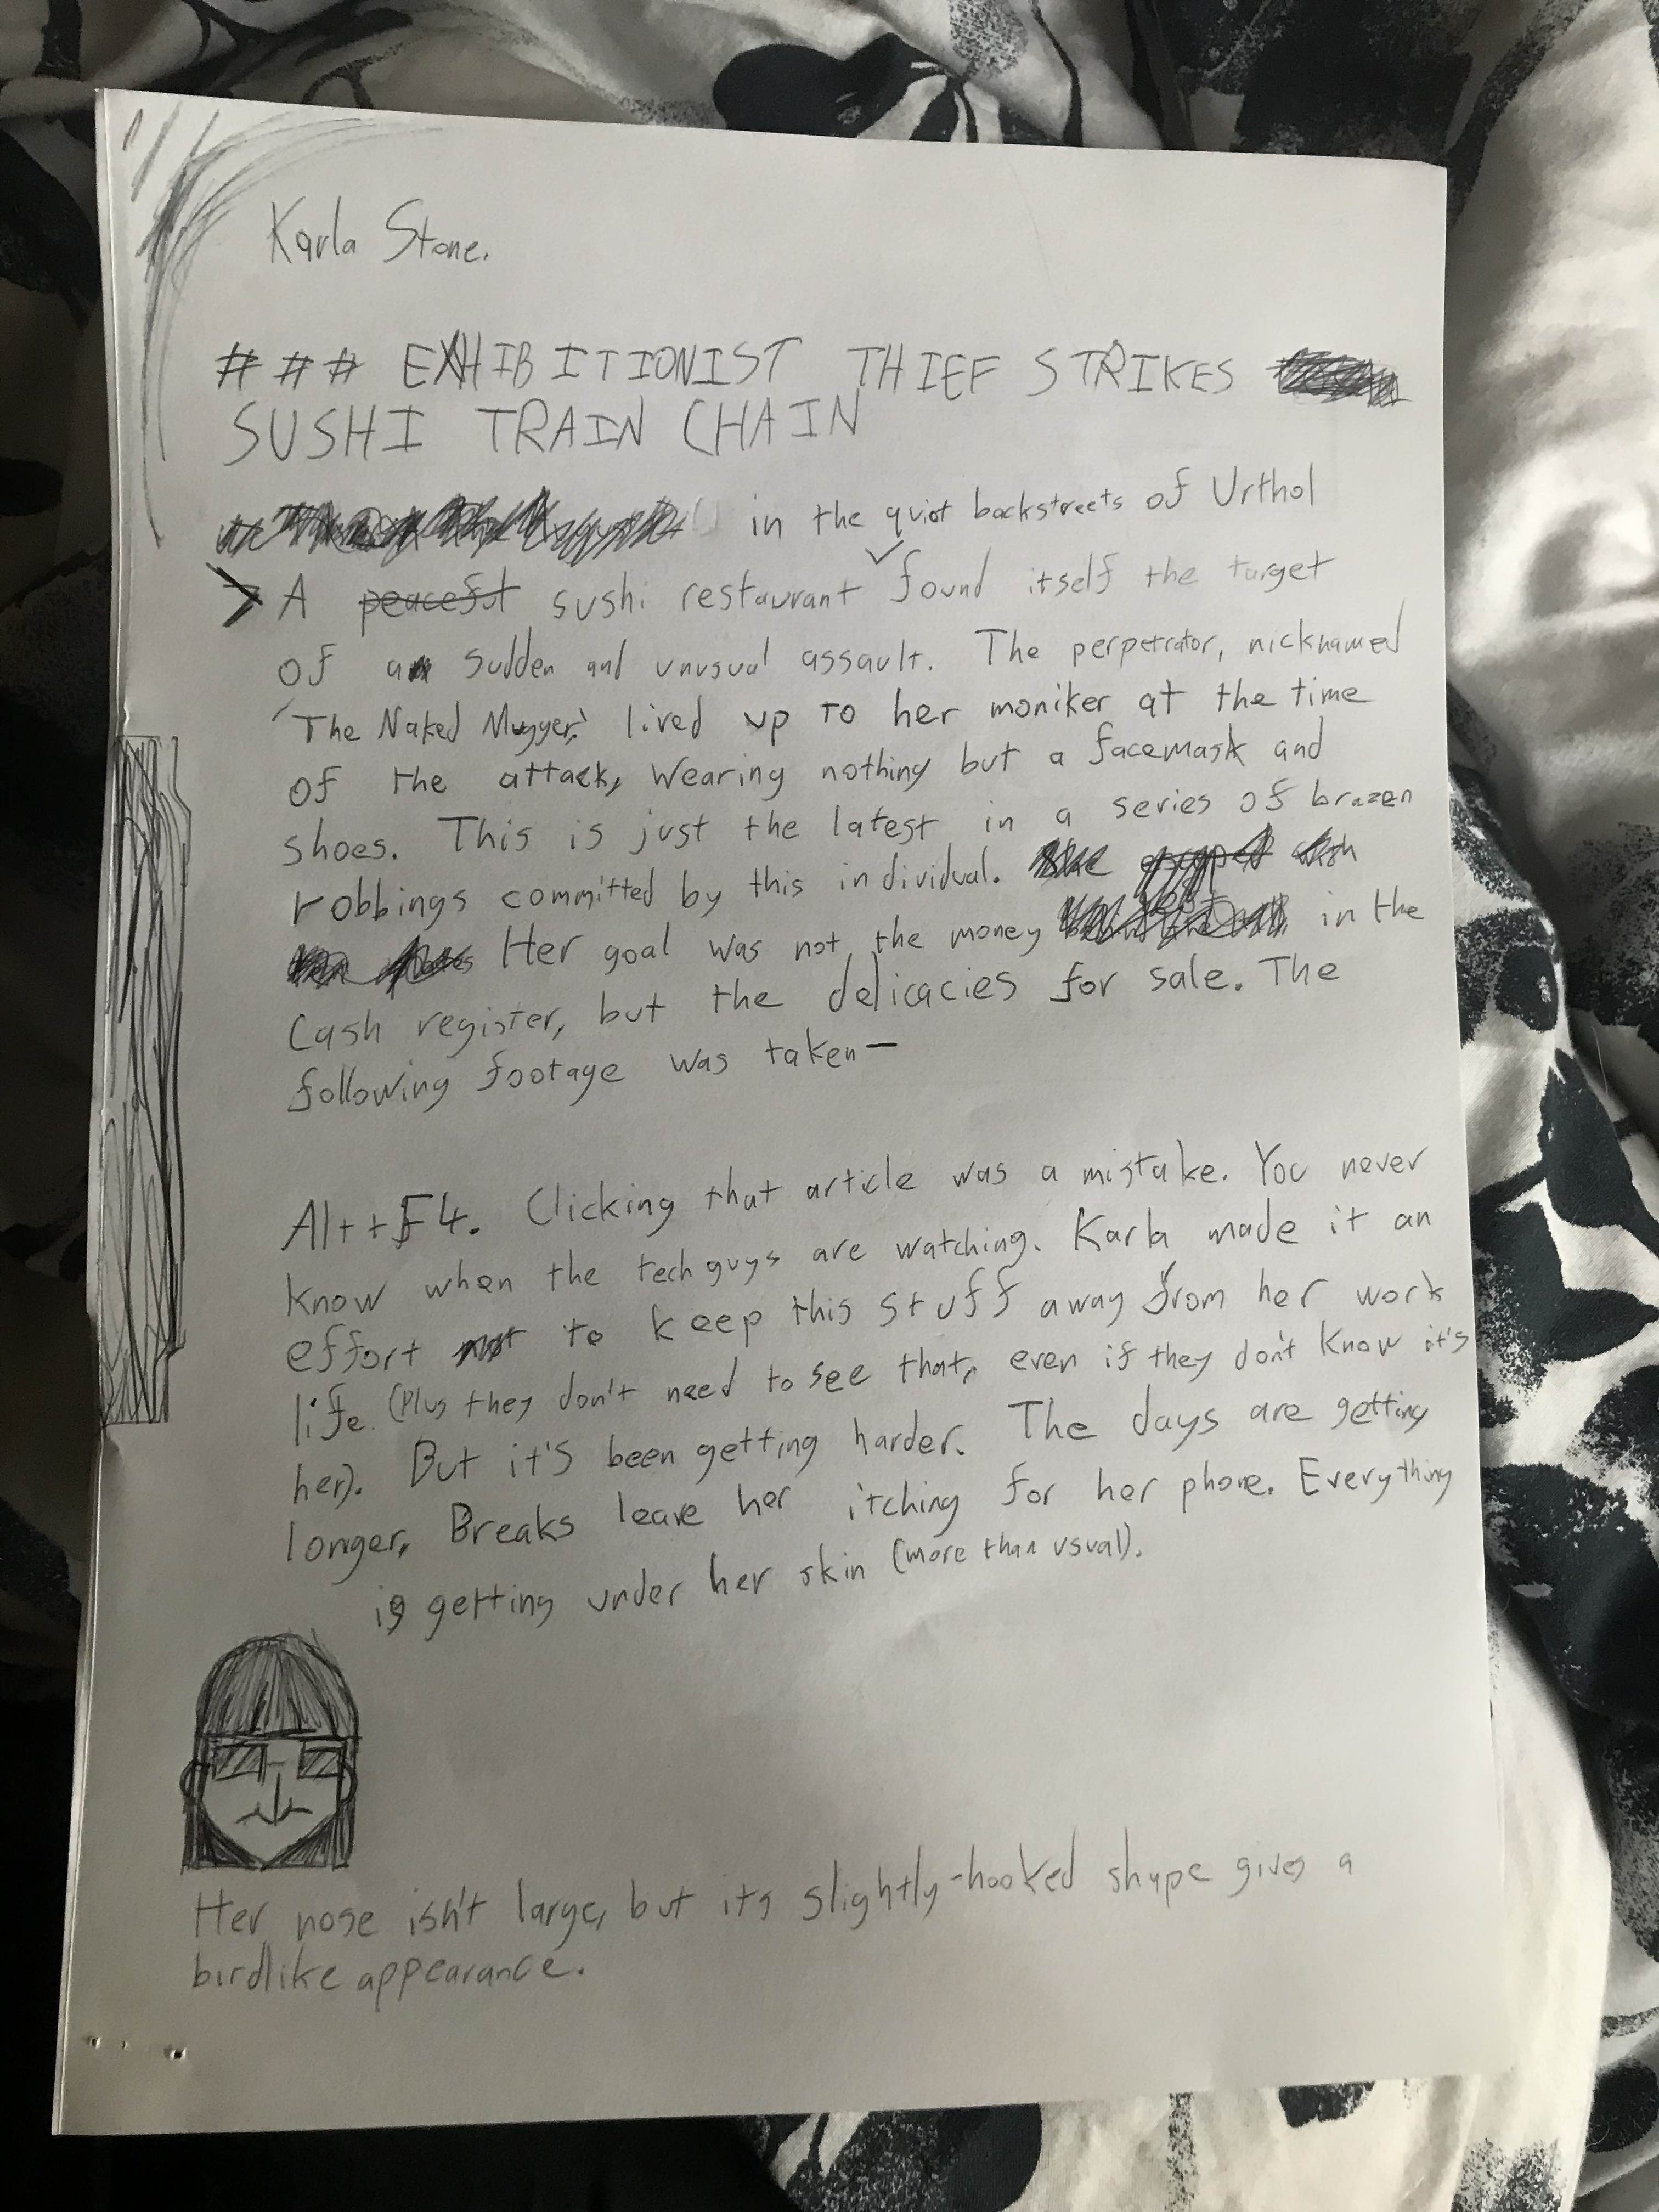 Karla Stone.
### EXHIBITIONIST THIEF STRIKES
SUSHI TRAIN CHAIN
in the quiet backstreets of Urthol
> A peaceful sushi restaurant found itself the target
of a sudden and unusual assault. The perpetrator, nicknamed
'The Naked Mugger,' lived up to her moniker at the time
of the attack, wearing nothing but a facemask and
shoes. This is just the latest in a series of brazen
robbings committed by this individual.
Her goal was not the money in the
cash register, but the delicacies for sale. The
following footage was taken—
Alt+F4. Clicking that article was a mistake. You never
know when the tech guys are watching. Karla made it an
effort not to keep this stuff away from her work
life. (Plus they don't need to see that, even if they don't know it's
her). But it's been getting harder. The days are getting
longer. Breaks leave her itching for her phone. Everything
is getting under her skin (more than usual).
Her nose isn't large, but its slightly-hooked shape gives a
birdlike appearance.